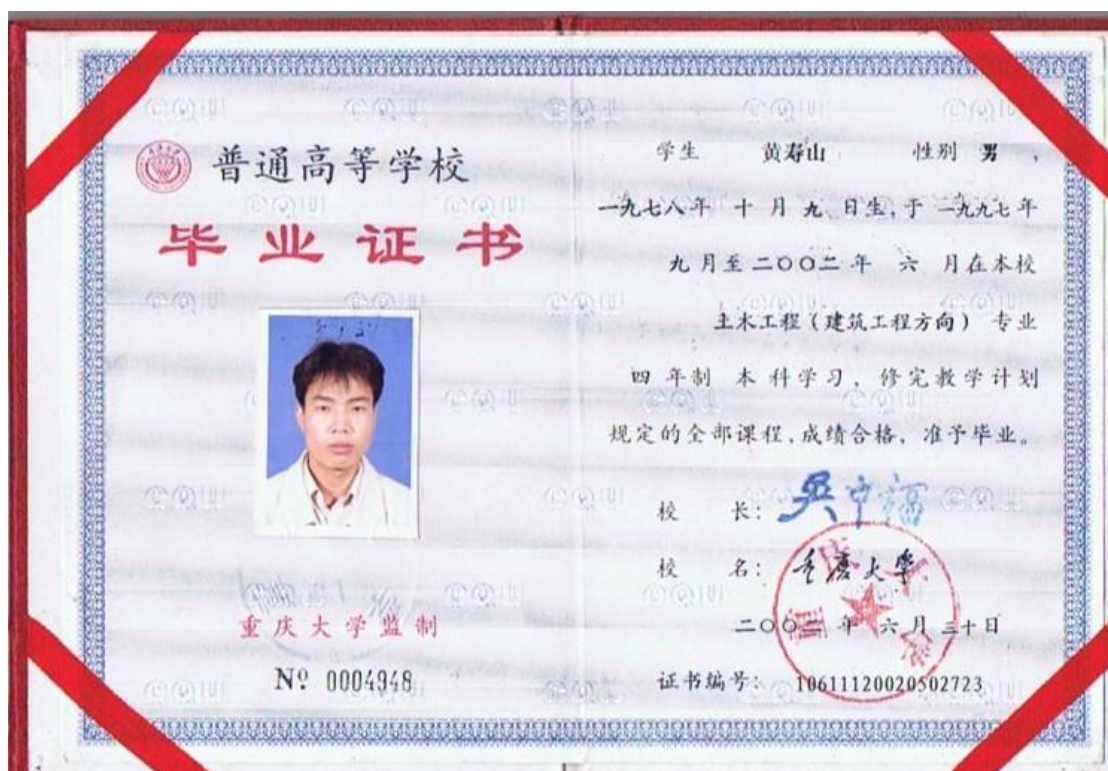 普通高等学校
毕业证书
重庆大学监制
Nº 0004948
学生 黄寿山 性别 男,
一九七八年 十 月 九 日生,于 一九九七年
九 月至 二〇〇二 年 六 月在本校
土木工程(建筑工程方向) 专业
四 年制 本 科学习, 修完教学计划
规定的全部课程,成绩合格, 准予毕业。
校 长: 吴中福
校 名: 重庆大学
二〇〇二 年 六 月 三十日
证书编号: 10611120020502723